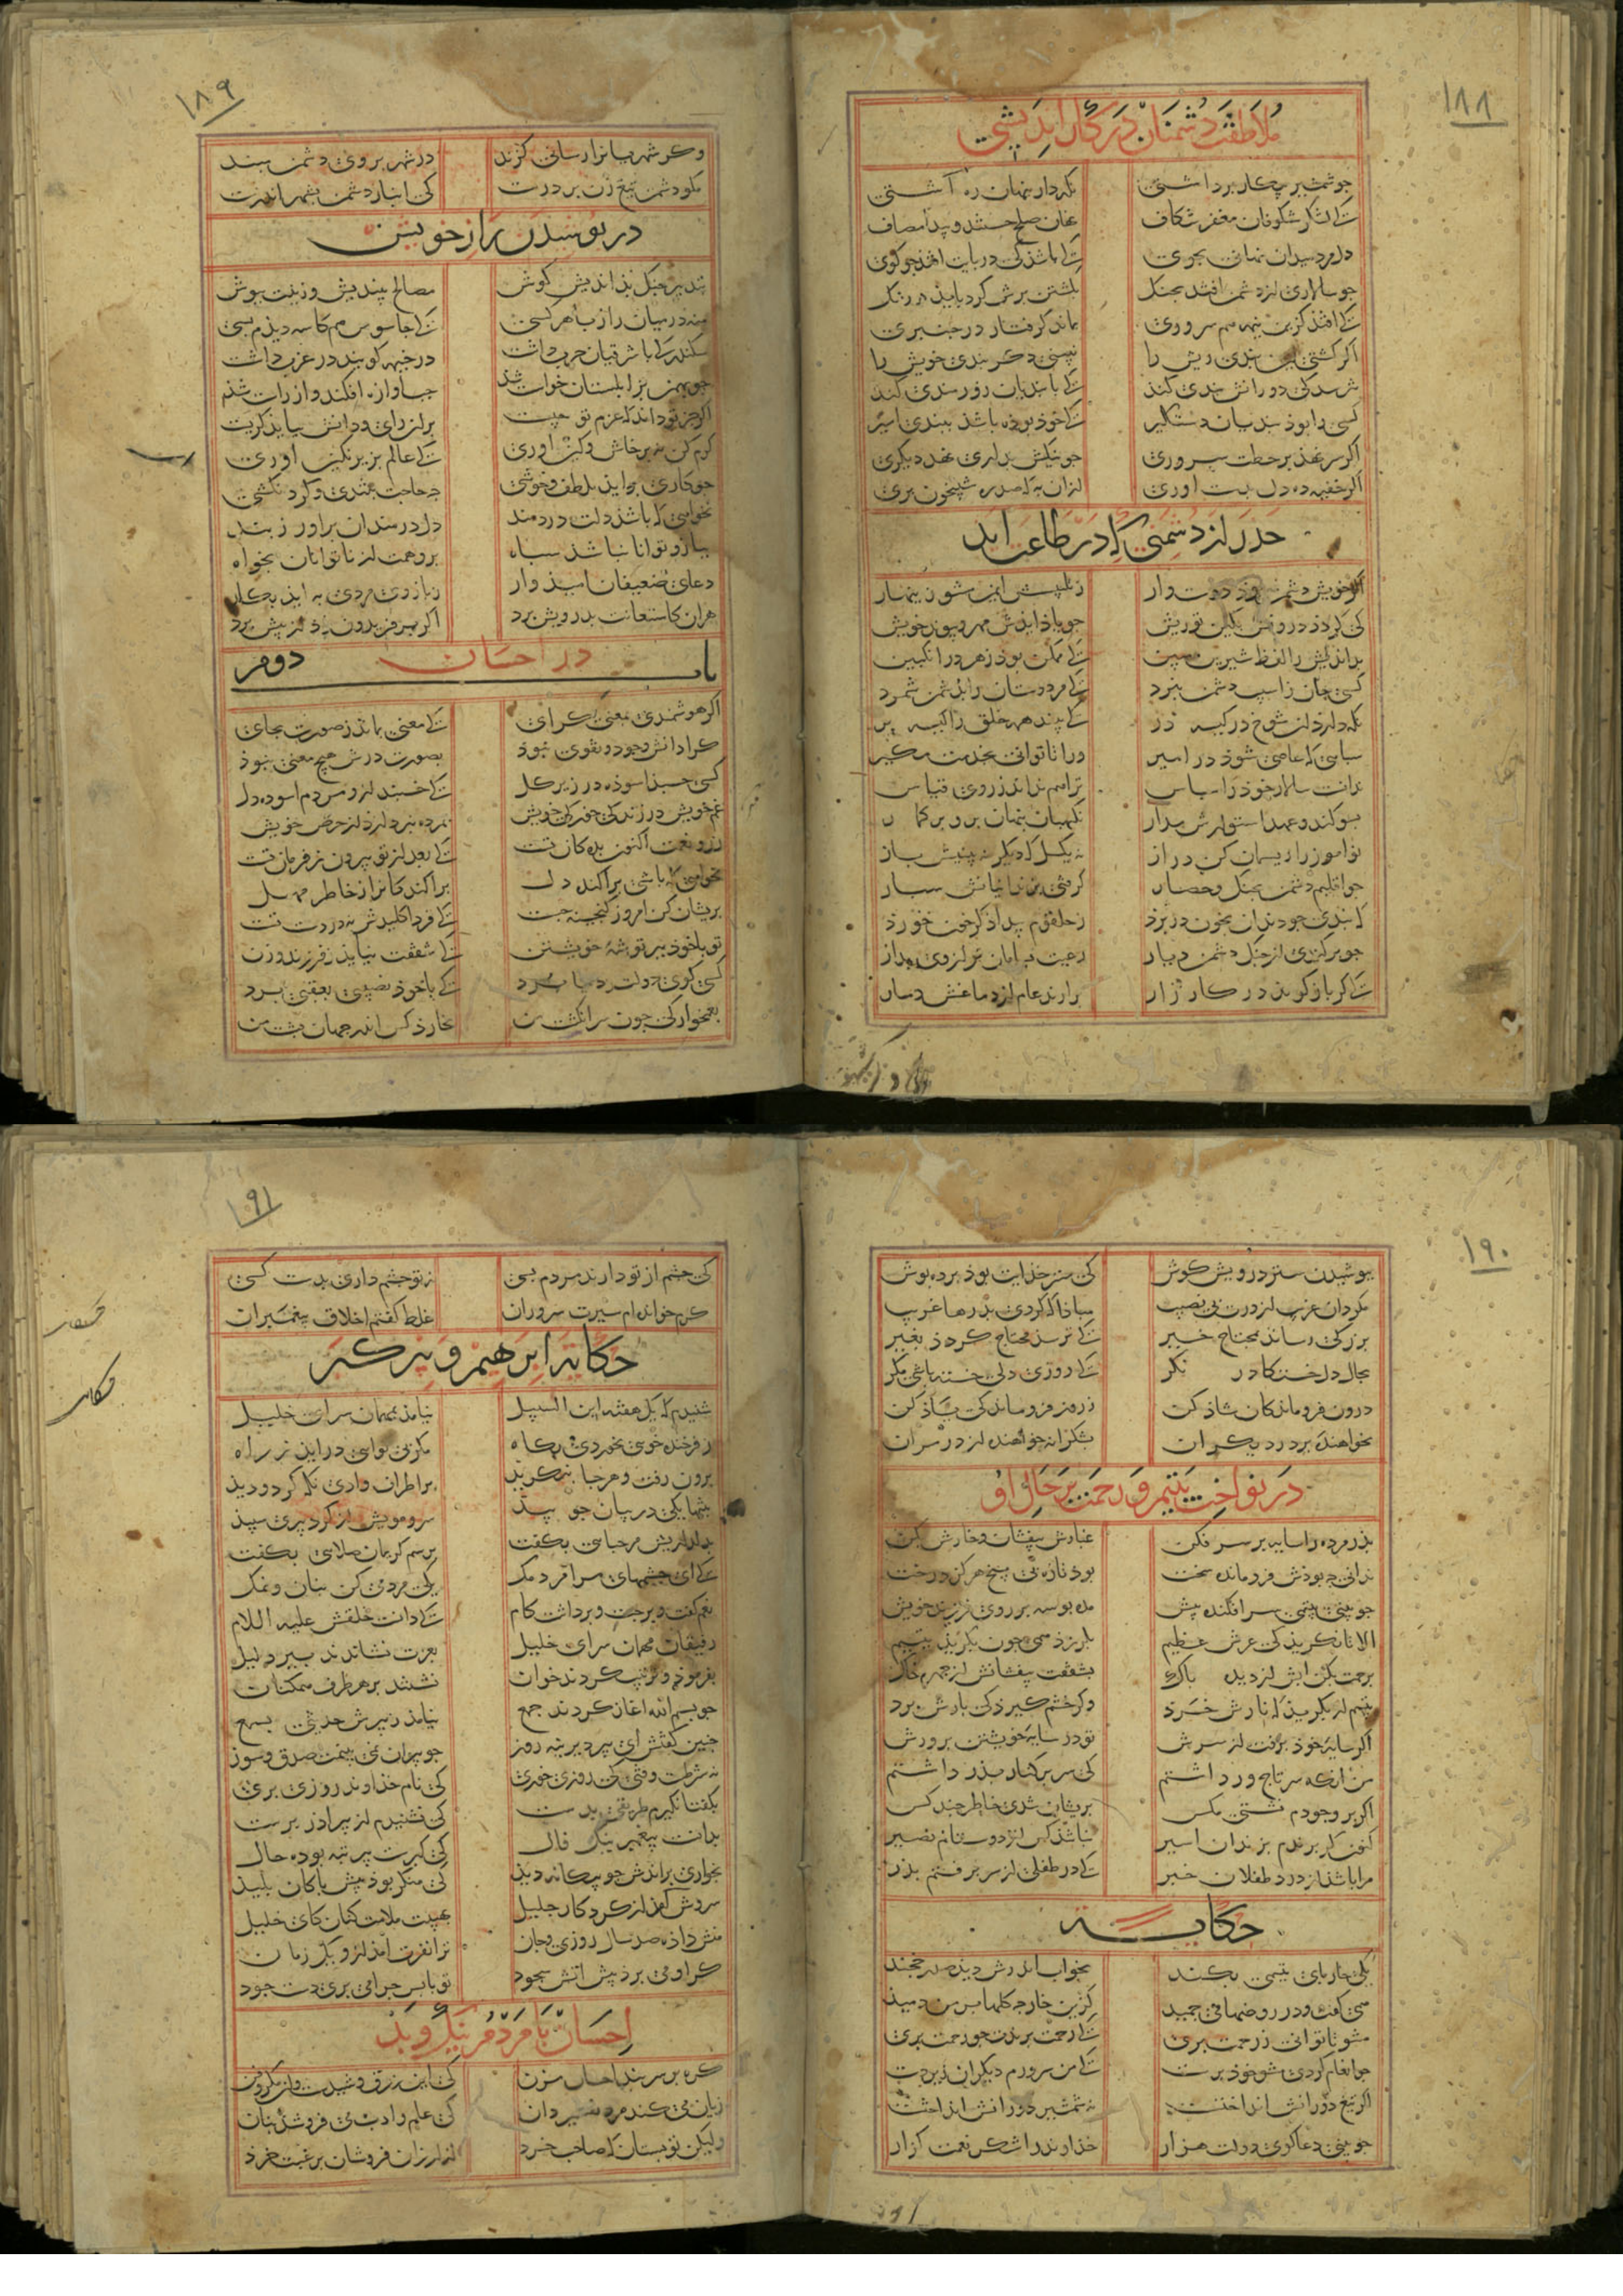 ۱۸۸
ملاطفت دشمنان در کار اندیشی
جو شمشیر پیکار برداشتی نکه دار پنهان ره آشتی
که لشکر شکوفان مغفر شکاف نهان صلح جستند و پیدا مصاف
دل مرد میدان نهانی بجوی که باشد کی در پایت افتد جو کوی
جو سالاری از دشمن افتد بجنک بکشتن برش کرد باید درنک
که افتد کزین نیمه هم سروری بماند کرفتار در جنبری
اکر کشتی این بندی ریش را نبینی دکر بندی خویش را
نترسد کی دورانش بندی کند که با بندیان زورمندی کند
کسی را بوذ بندیان دستکیر که خود بوده باشد ببندی اسیر
اکر سر نهذ بر خطت سروری جو نیکش بداری نهد دیکری
اکر خفیه ده دل بدست آوری از آن به که صد ره شبیخون بری
حذر از دشمنی که در طاعت آید
کرت خویش دشمن شوذ دوست‌دار ز تلبیسش ایمن مشو زینهار
کی کردذ درونش بکین تو ریش جو یاذ آیدش مهر و پیوند خویش
بداندیش را لفظ شیرین مبین که ممکن بود زهر در انکبین
کسی جان ز آسیب دشمن ببرد که مر دوستان را بدشمن شمرد
نکه دارذ آن شوخ در کیسه در که بیند همه خلق را کیسه بر
سپاهی که عاصی شود در امیر ورا تا توانی بخدمت مکیر
ندانست سالار خود را سپاس ترا هم نداند ز روی قیاس
بسوکند و عهد استوارش مدار نکهبان پنهان برو بر کمار
نوآموز را ریسمان کن دراز نه بکسل که دیکر نه بینیش باز
جو اقلیم دشمن بجنک و حصار کرفتی بزندانیانش سپار
که بندی جو دندان بخون در برد ز حلقوم بیدادکر خون خورد
جو برکندی از جنک دشمن دیار رعیت بسامان‌تر از وی بدار
که کر باز کوبد در کارزار برارند عام از دماغش دمار
۱۸۹
وکر شهریانرا رسانی کزند در شهر بر روی دشمن مبند
مکو دشمن تیغ‌زن بر درست کی انباز دشمن بشهر اندرست
در پوشیدن راز خویش
بتدبیر جنک بداندیش کوش مصالح بیندیش و نیت بپوش
منه در میان راز با هر کسی که جاسوس هم‌کاسه دیدم بسی
سکندر که با شرقیان حرب داشت در خیمه کویند در غرب داشت
جو بهمن بزابلستان خواست شد جب آوازه افکند و از راست شد
اکر جز تو داند که عزم تو جیست بر آن رای و دانش بباید کریست
کرم کن نه پرخاش و کین آوری که عالم بزیر نکین آوری
جو کاری برآید بلطف و خوشی جه حاجت بتندی و کردن‌کشی
نخواهی که باشد دلت دردمند دل دردمندان برآور ز بند
ببازو توانا نباشد سپاه برو همت از ناتوانان بخواه
دعای ضعیفان امیدوار ز بازوی مردی به آید بکار
هر آن کاستعانت بدرویش برد اکر بر فریدون زد از پیش برد
باب دوم در احسان
اکر هوشمندی بمعنی کرای که معنی بماند ز صورت بجای
کرا دانش و جود و تقوی نبوذ بصورت درش هیج معنی نبوذ
کسی خسبد آسوده در زیر کل که خسبند ازو مردم آسوده دل
غم خویش در زندکی خور کی خویش بمرده نپردازد از حرص خویش
زر و نعمت اکنون بده کان تست که بعد از تو بیرون ز فرمان تست
نخواهی که باشی پراکنده دل پراکندکانرا ز خاطر مهل
پریشان کن امروز کنجینه جست که فردا کلیدش نه در دست تست
تو با خود ببر توشهٔ خویشتن که شفقت نیاید ز فرزند و زن
کسی کوی دولت ز دنیا برد که با خود نصیبی بعقبی برد
بغمخوارکی جون سرانکشت من نخارد کس اندر جهان پشت من
۱۹۰
بپوشیدن ستر درویش کوش کی ستر خدایت بود پرده‌پوش
مکردان غریب از درت بی‌نصیب مبادا که کردی بدرها غریب
بزرکی رساند بمحتاج خیر که ترسد محتاج کردد بغیر
بحال دل خستکان در نکر که روزی دلی خسته باشی مکر
درون فروماندکان شاذ کن ز روز فروماندکی یاذ کن
نخواهنده بر در دیکران بشکرانه خواهنده از در مران
در نواخت یتیم و رحمت بر حال او
پدر مرده را سایه بر سر فکن غبارش بیفشان و خارش بکن
ندانی جه بودش فرومانده سخت بود تازه بی بیخ هرکز درخت
جو بینی یتیمی سرافکنده پیش مده بوسه بر روی فرزند خویش
الا تا نکرید کی عرش عظیم بلرزد همی جون بکرید یتیم
برحمت بکن آبش از دیده پاک بشفقت بیفشانش از چهره خاک
یتیم ار بکرید که نازش خرد وکر خشم کیرد کی بارش برد
اکر سایه خود برفت از سرش تو در سایه خویشتن پرورش
من آنکه سر تاجور داشتم کی سر بر کنار پدر داشتم
اکر بر وجودم نشستی مکس پریشان شدی خاطر جند کس
کنون کر بزندان برندم اسیر نباشد کس از دوستانم نصیر
مرا باشد از درد طفلان خبر که در طفلی از سر برفتم پدر
حکایت
یکی خار پای یتیمی بکند بخواب اندرش دید صدر خجند
همی کفت و در روضها می‌جمید کزین خار جه کلها بر من دمید
مشو تا توانی ز رحمت بری که رحمت برندت جو رحمت بری
جو انعام کردی مشو خودپرست که من سرورم دیکران زیردست
اکر تیغ دورانش انداختست نه شمشیر دورانش انداختست
جو بینی دعاکوی دولت هزار خداوند را شکر نعمت کزار
۱۹۱
کی جشم از تو دارند مردم بسی نه تو جشم داری بدست کسی
کرم خوانده‌ام سیرت سروران غلط کفتم اخلاق پیغمبران
حکایة ابرهیم و پیر کبر
شنیدم که یک هفته ابن السبیل نیامد بمهمان‌سرای خلیل
ز فرخنده خویی نخوردی بکاه مکر بی‌نوایی درآید ز راه
برون رفت و هر جانبی بنکرید بر اطراف وادی نکه کرد و دید
بتنها یکی در بیابان جو بید سر و مویش از کرد پیری سپید
بدلداریش مرحبایی بکفت برسم کریمان صلایی بکفت
که ای جشمهای مرا مردمک یکی مردمی کن بنان و نمک
نعم کفت و برجست و برداشت کام که دانست خلقش علیه السلام
رفیقان مهمان‌سرای خلیل بعزت نشاندند پیر ذلیل
بفرمود و ترتیب کردند خوان نشستند بر هر طرف همکنان
جو بسم الله آغاز کردند جمع نیامد ز پیرش حدیثی بسمع
جنین کفتش ای پیر دیرینه روز جو پیران نمی‌بینمت صدق و سوز
نه شرطست وقتی کی روزی خوری کی نام خداوند روزی بری
بکفتا نکیرم طریقی بدست کی نشنیدم از پیر آذرپرست
بدانست پیغمبر نیک فال کی کبرست پیر تبه بوده حال
بخواری براندش جو بیکانه دید کی منکر بود پیش پاکان پلید
سروش آمد از کردکار جلیل بهیبت ملامت کنان کای خلیل
منش داده صد سال روزی و جان ترا نفرت آمد ازو یک زمان
کر او می‌برد پیش آتش سجود تو با پس جرا می‌بری دست جود
احسان با مردم نیک و بد
کره بر سر بند احسان مزن کی این زرق و شیدست و آن مکر و فن
زیان می‌کند مرد تفسیردان کی علم و ادب می‌فروشد بنان
ولیکن تو بستان که صاحب خرد از ارزان‌فروشان برغبت خرد
حکایت